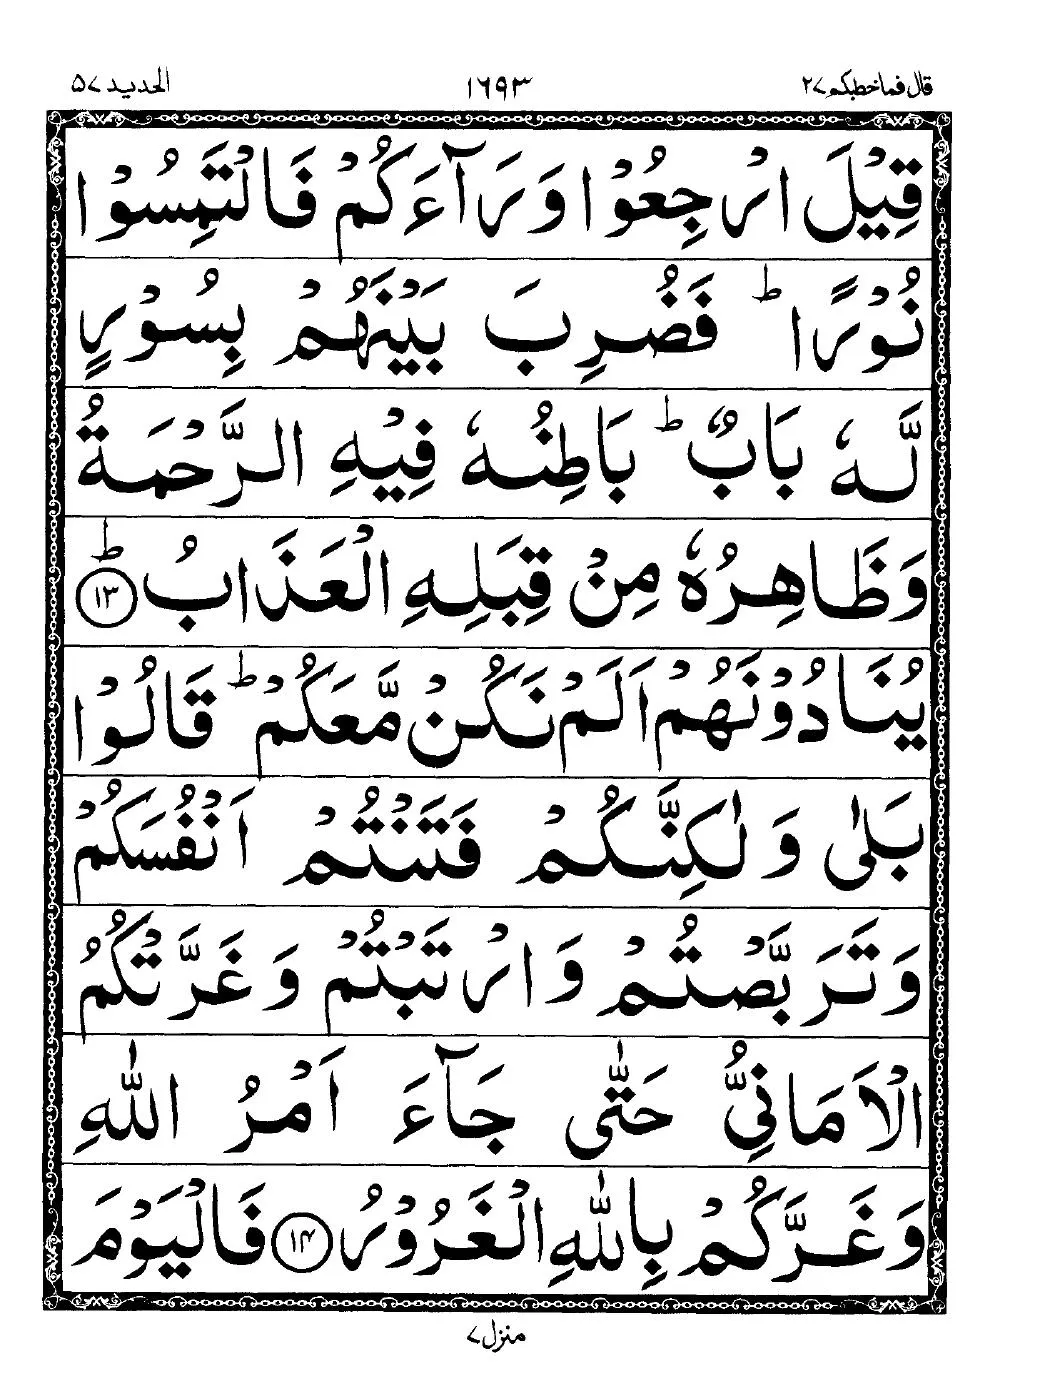 قال فما خطبكم ٢٧ ١٦٩٣ الحديد ٥٧
قِيْلَ ارْجِعُوْا وَرَآءَكُمْ فَالْتَمِسُوْا
نُوْرًا ؕ فَضُرِبَ بَيْنَهُمْ بِسُوْرٍ
لَّهٗ بَابٌ ؕ بَاطِنُهٗ فِيْهِ الرَّحْمَةُ
وَظَاهِرُهٗ مِنْ قِبَلِهِ الْعَذَابُ ؕ ١٣
يُنَادُوْنَهُمْ اَلَمْ نَكُنْ مَّعَكُمْ ؕ قَالُوْا
بَلٰى وَلٰكِنَّكُمْ فَتَنْتُمْ اَنْفُسَكُمْ
وَتَرَبَّصْتُمْ وَارْتَبْتُمْ وَغَرَّتْكُمُ
الْاَمَانِىُّ حَتّٰى جَآءَ اَمْرُ اللّٰهِ
وَغَرَّكُمْ بِاللّٰهِ الْغَرُوْرُ ١٤ فَالْيَوْمَ
منزل ٧